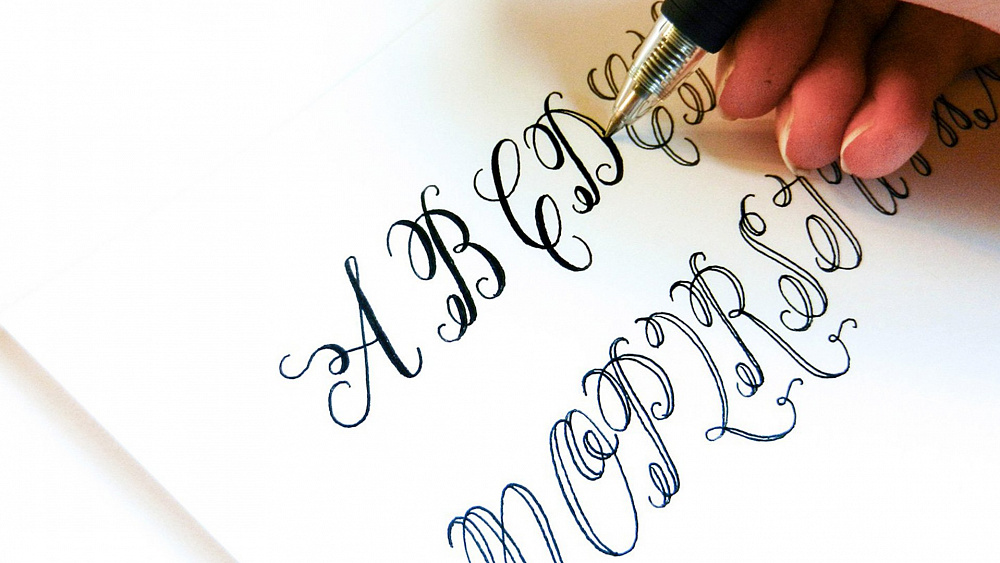 A B C D E
O P Q R S T